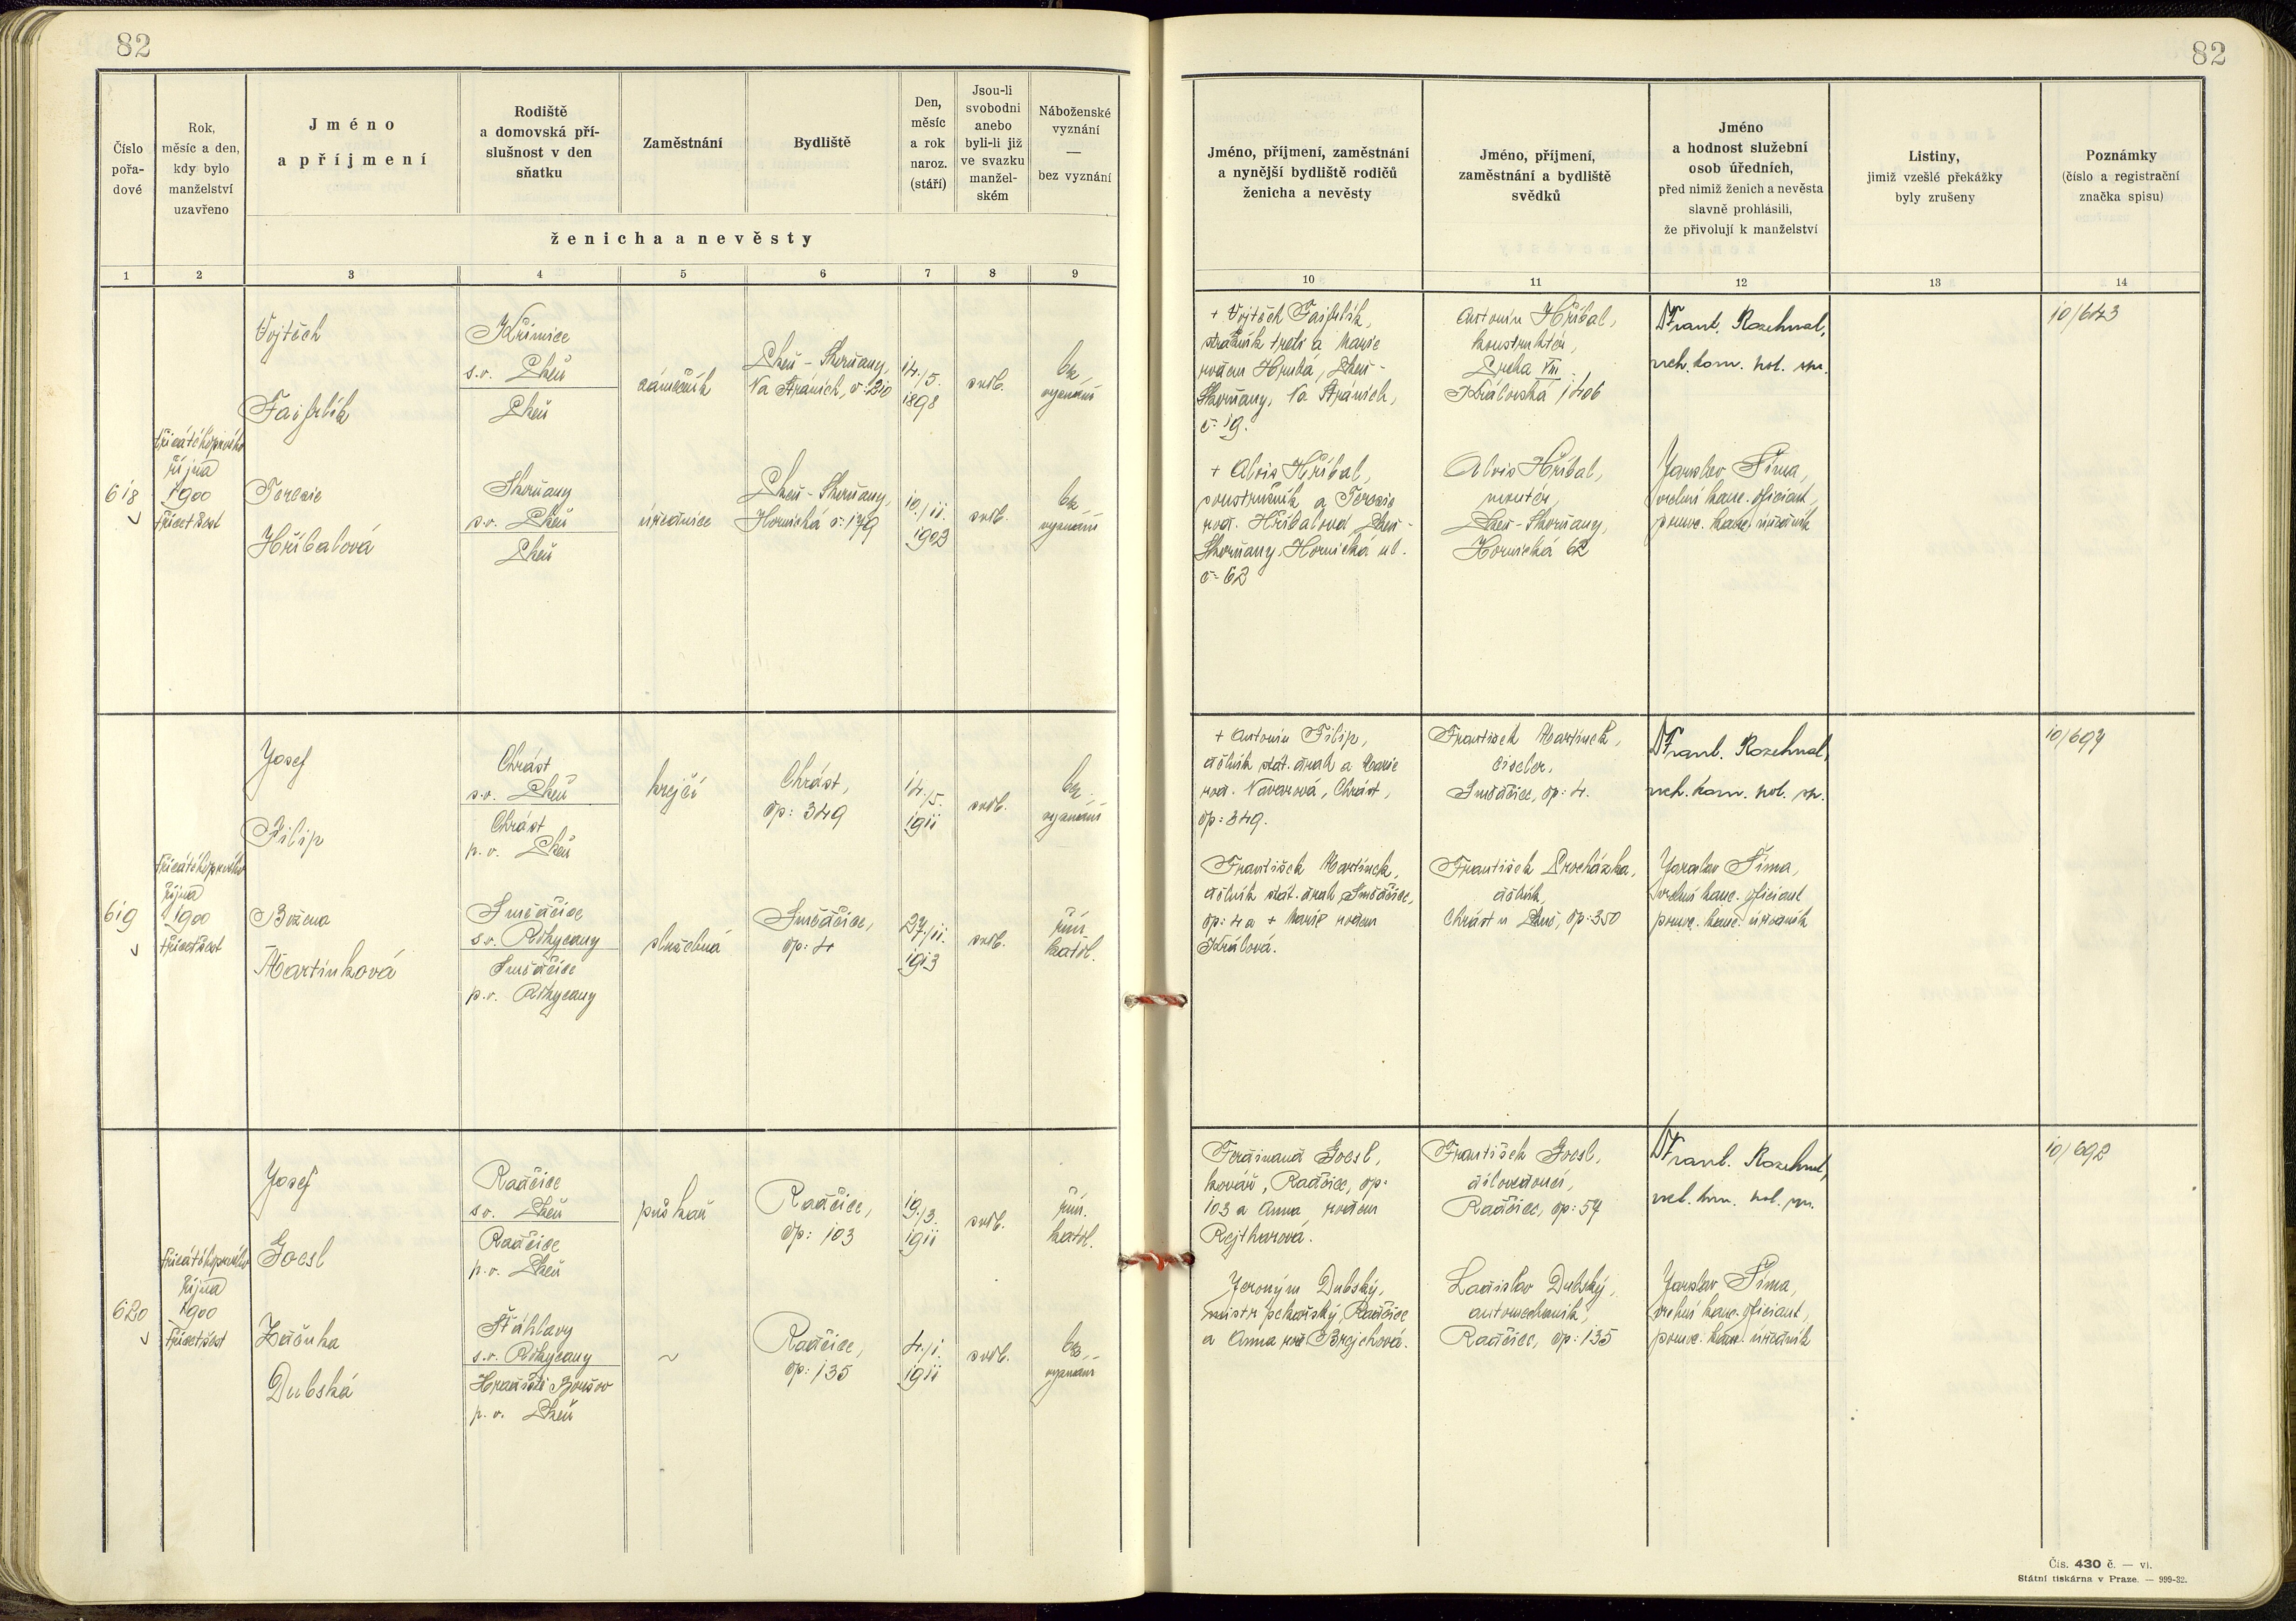 82
82
Číslo
pořa-
dové
Rok,
měsíc a den,
kdy bylo
manželství
uzavřeno
Jméno
a příjmení
Rodiště
a domovská pří-
slušnost v den
sňatku
Zaměstnání
Bydliště
Den,
měsíc
a rok
naroz.
(stáří)
Jsou-li
svobodni
anebo
byli-li již
ve svazku
manžel-
ském
Náboženské
vyznání
—
bez vyznání
ženicha a nevěsty
Jméno, příjmení, zaměstnání
a nynější bydliště rodičů
ženicha a nevěsty
Jméno, příjmení,
zaměstnání a bydliště
svědků
Jméno
a hodnost služební
osob úředních,
před nimiž ženich a nevěsta
slavně prohlásili,
že přivolují k manželství
Listiny,
jimiž vzešlé překážky
byly zrušeny
Poznámky
(číslo a registrační
značka spisu)
1 2 3 4 5 6 7 8 9 10 11 12 13 14
618
třicátéhoprvního
října
1900
třicetšest
Vojtěch
Fajfrlík
Křimice
s.o. Plzeň
Plzeň
zámečník
Plzeň - Skvrňany,
Na Stráních, č: 210
14./5.
1898
svob.
bez
vyznání
Terezie
Hříbalová
Skvrňany
s.o. Plzeň
Plzeň
úřednice
Plzeň - Skvrňany,
Hornická č: 179
10./11.
1903
svob.
bez
vyznání
+ Vojtěch Fajfrlík,
strážník trati a Marie
rodem Hrubá, Plzeň -
Skvrňany, Na Stráních,
č: 19.
+ Alois Hříbal,
soustružník a Terezie
rod. Hříbalová, Plzeň -
Skvrňany, Hornická ul.
č: 62
Antonín Hříbal,
konstruktér,
Praha VIII
Královská 1406
Alois Hříbal,
montér,
Plzeň - Skvrňany,
Hornická 62
Frant. Rozehnal,
vrch. kom. pol. spr.
Jaroslav Šíma,
vrchní kanc. oficiant,
pomoc. kanc. úředník
10/643
619
třicátéhoprvního
října
1900
třicetšest
Josef
Filip
Chrást
s.o. Plzeň
Chrást
p.o. Plzeň
krejčí
Chrást,
čp: 349
14./5.
1911
svob.
bez
vyznání
Božena
Martínková
Smědčice
s.o. Rokycany
Smědčice
p.o. Rokycany
služebná
Smědčice,
čp: 4
27./11.
1913
svob.
řím.
katol.
+ Antonín Filip,
dělník stát. drah a Marie
rod. Navarová, Chrást,
čp: 349.
František Martínek,
dělník stát. drah, Smědčice,
čp: 4 a + Marie rodem
Králová.
František Martínek,
ciseler,
Smědčice, čp: 4.
František Procházka,
dělník,
Chrást u Plzně, čp: 350
Frant. Rozehnal,
vrch. kom. pol. spr.
Jaroslav Šíma,
vrchní kanc. oficiant
pomoc. kanc. úředník
10/697
620
třicátéhoprvního
října
1900
třicetšest
Josef
Goesl
Radčice
s.o. Plzeň
Radčice
p.o. Plzeň
puškař
Radčice,
čp: 103
19./3.
1911
svob.
řím.
katol.
Zdeňka
Dubská
Šťáhlavy
s.o. Rokycany
Hradiště Boušov
p.o. Plzeň
~
Radčice,
čp: 135
4./1.
1911
svob.
bez
vyznání
Ferdinand Goesl,
kovář, Radčice, čp:
103 a Anna rodem
Rejtharová.
Jeroným Dubský,
mistr pekařský, Radčice
a Anna rod Brejchová.
František Goesl,
dílovedoucí,
Radčice, čp: 57
Ladislav Dubský,
automechanik,
Radčice, čp: 135
Frant. Rozehnal,
vrch. kom. pol. spr.
Jaroslav Šíma,
vrchní kanc. oficiant,
pomoc. kanc. úředník
10/692
Čís. 430 č. — vi.
Státní tiskárna v Praze. — 999-32.